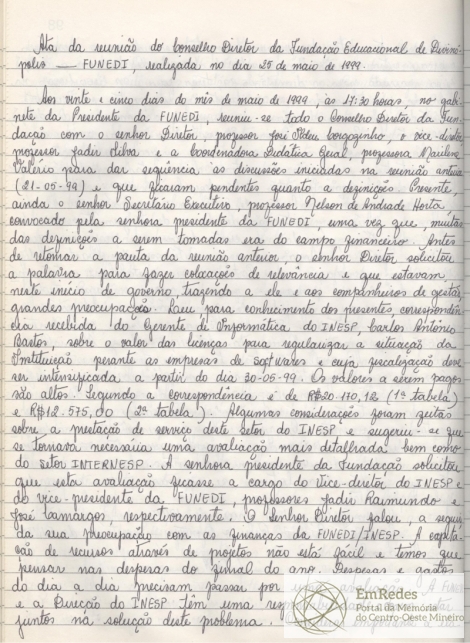 Ata da reunião do Conselho Diretor da Fundação Educacional de Divinó-
polis — FUNEDI, realizada no dia 25 de maio de 1999.
Aos vinte e cinco dias do mês de maio de 1999, às 17:30 horas, no gabi-
nete da Presidente da FUNEDI, reuniu-se todo o Conselho Diretor da Fun-
dação com o senhor Diretor, professor José Borgozinho, o vice-diretor
professor Jadir Silva e a Coordenadora Didática Geral, professora Marilene
Valério para dar seguência as discussões iniciadas na reunião anterior
(21-05-99) e que ficaram pendentes quanto a definições. Presente,
ainda o senhor Secretário Executivo, professor Nelson de Andrade Horta
convocado pela senhora presidente da FUNEDI, uma vez que, muitas
das definições a serem tomadas era do campo financeiro. Antes
de retomar a pauta da reunião anterior, o senhor Diretor solicitou
a palavra para fazer colocações de relevância e que estavam,
neste início de governo, trazendo a ele e aos companheiros de gestão,
grandes preocupações. Leu para conhecimento dos presentes, correspondên-
cia recebida do Gerente de Informática do INESP, Carlos Antônio
Bastos, sobre o valor das licenças para regularizar a situação da
Instituição perante as empresas de Softwares e cuja fiscalização deve
ser intensificada a partir do dia 30-05-99. Os valores a serem pagos
são altos. Segundo a correspondência é de R$20.170,12 (1ª tabela)
e R$12.575,00 (2ª tabela). Algumas considerações foram feitas
sobre a prestação de serviço deste setor do INESP e sugeriu-se que
se tornava necessária uma avaliação mais detalhada bem como
do setor INTERNESP. A senhora presidente da Fundação solicitou
que esta avaliação ficasse a cargo do vice-diretor do INESP e
do vice-presidente da FUNEDI, professores Jadir Raimundo e
José Camargos, respectivamente. O senhor Diretor falou, a seguir
da sua preocupação com as finanças da FUNEDI/INESP. A capta-
ção de recursos através de projetos não está fácil e temos que
pensar nas despesas do final do ano. Despesas e gastos
do dia a dia precisam passar por
e a Direção do INESP têm uma
juntos na solução deste problema.
EmRedes
Portal da Memória
do Centro-Oeste Mineiro